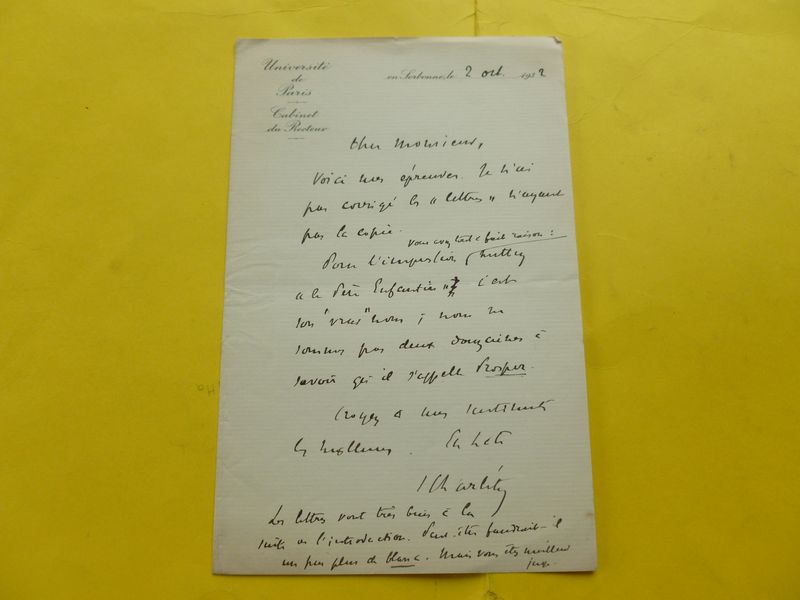 Université
de
Paris
Cabinet
du Recteur
en Sorbonne, le 2 oct. 1932
Cher Monsieur,
Voici mes épreuves. Je n'ai
pas corrigé les "lettres" n'ayant
pas la copie.
vous avez tout à fait raison :
Pour l'impression, mettez
a le Père Enfantin", c'est
son "vrai" nom ; nous ne
sommes pas deux douzaines à
savoir qu'il s'appelle Prosper.
Croyez à mes sentiments
les meilleurs. En hâte
S Charléty
Les lettres vont très bien à la
suite de l'introduction. Peut-être faudrait-il
un peu plus de blanc. Mais vous êtes meilleur
juge.